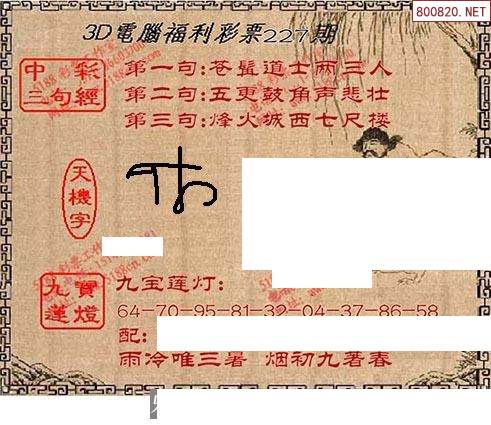 800820.NET
3D電腦福利彩票227期
中彩三句經
第一句:苍髯道士两三人
第二句:五更鼓角声悲壮
第三句:烽火城西七尺楼
天機字
九寶蓮燈
九宝莲灯:
64-70-95-81-32-04-37-86-58
配:
雨冷唯三署 烟初九著春